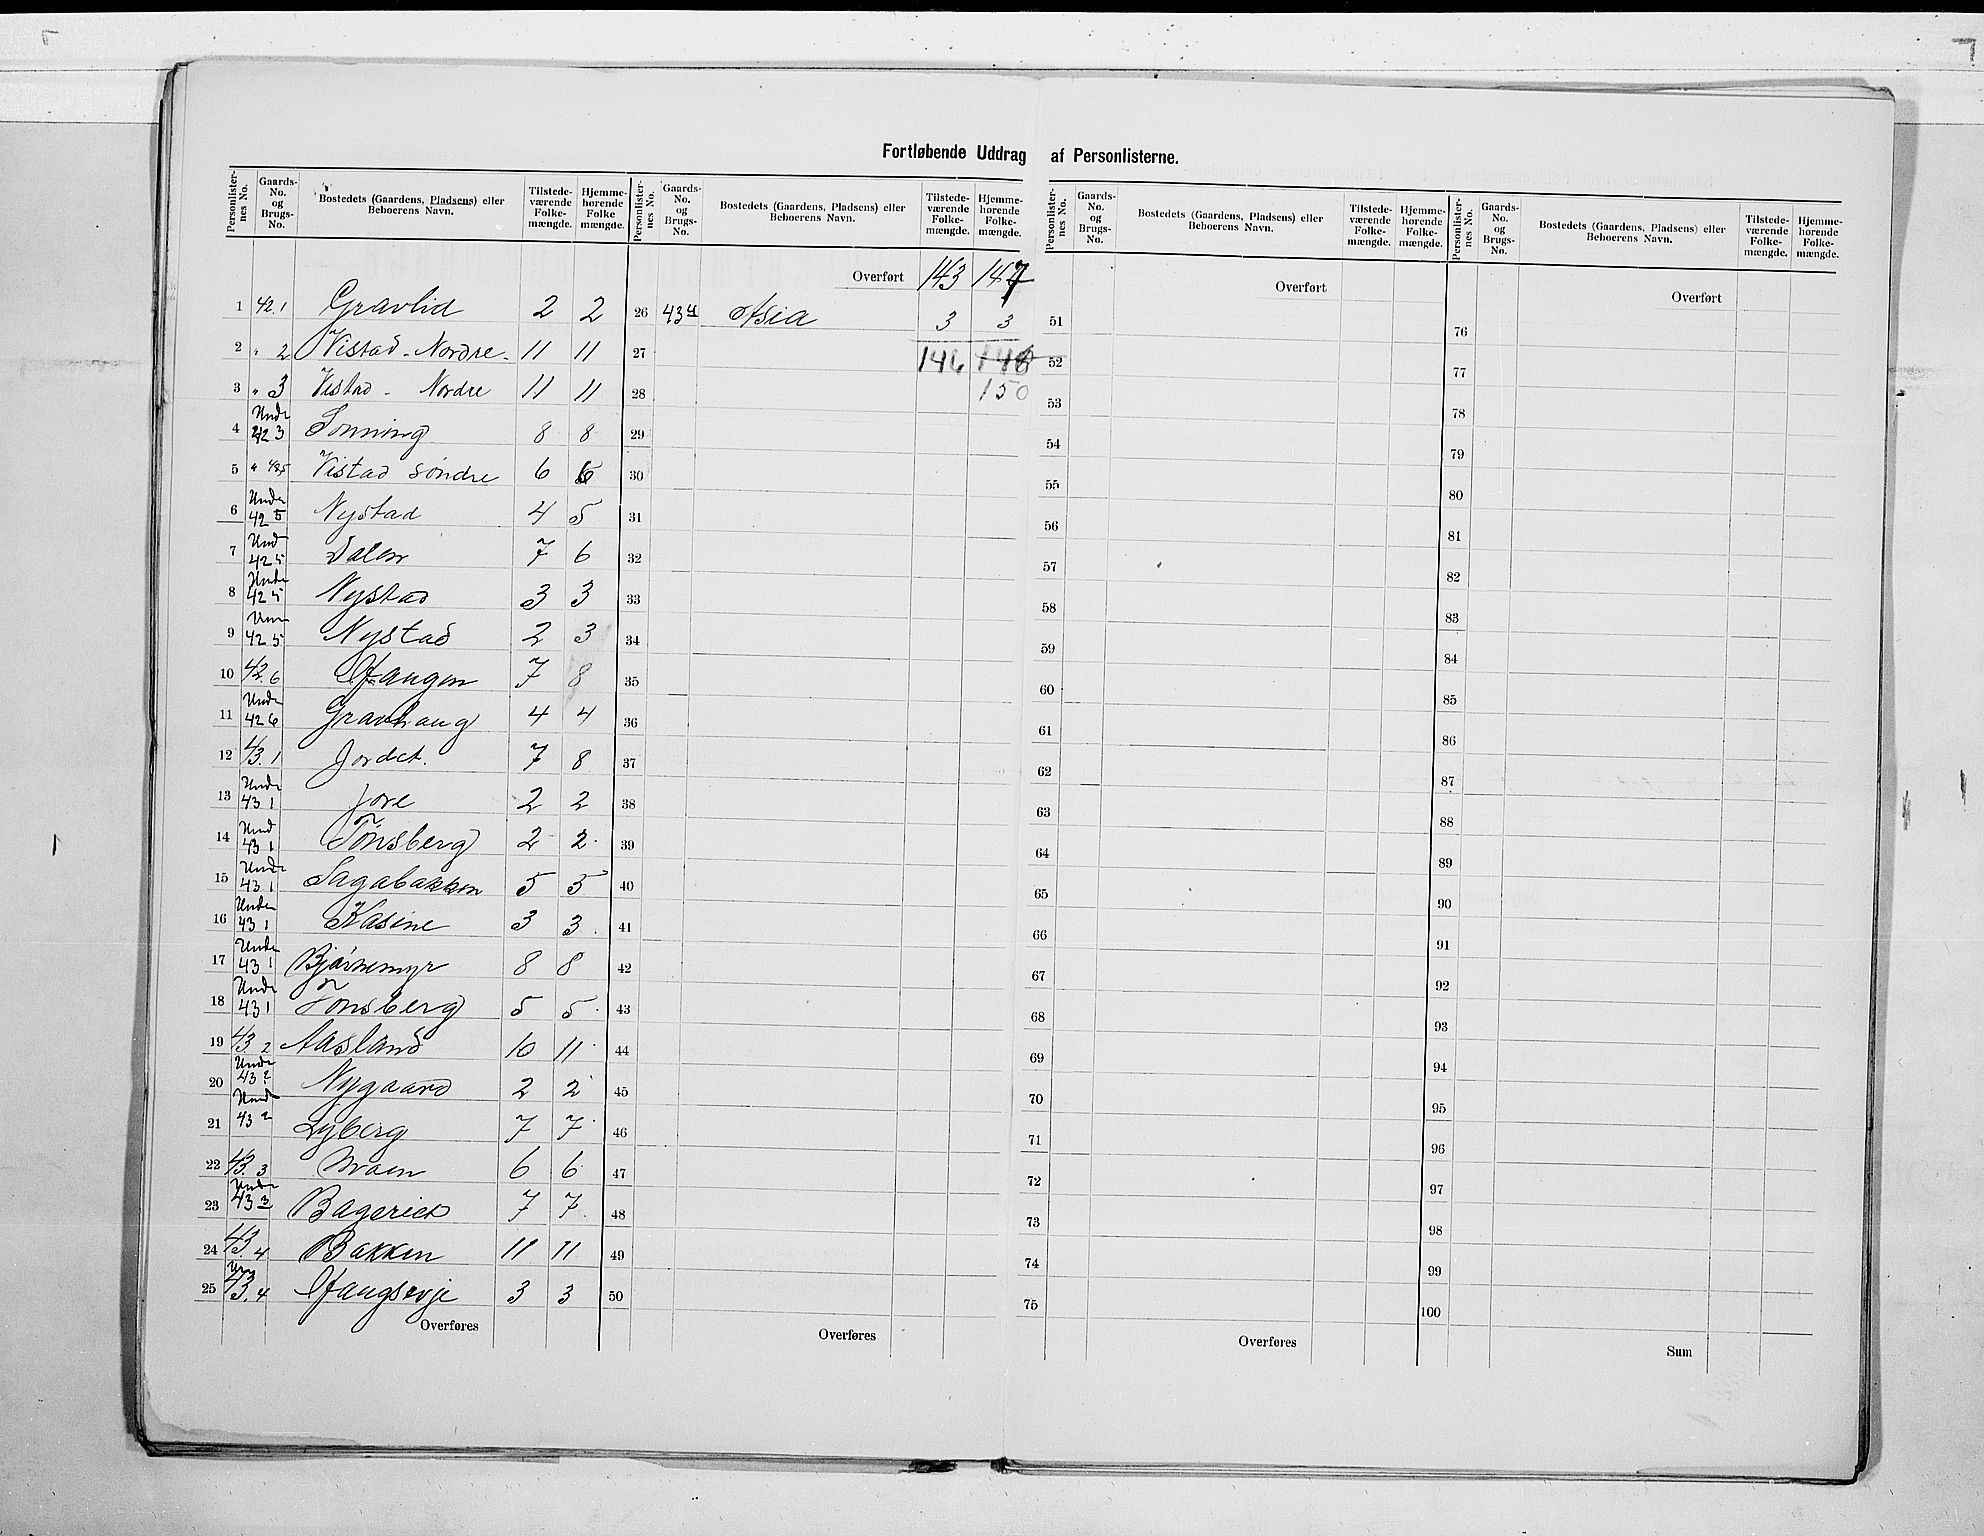 Fortløbende Uddrag af Personlisterne.
Personlisternes No. Gaards-No. og Brugs-No. Bostedets (Gaardens, Pladsens) eller Beboerens Navn. Tilstedeværende Folkemængde. Hjemmehørende Folkemængde.
1 42.1 Gravlid 2 2
2 " 2 Vistad - Nordre - 11 11
3 " 3 Vistad - Nordre 11 11
4 Unde 42 3 Sonning 8 8
5 " 42,5 Vistad søndre 6 6
6 Unde 42 5 Nystad 4 5
7 Und 42 5 Dalen 7 6
8 Unde 42 5 Nystad 3 3
9 Unn 42 5 Nystad 2 3
10 42.6 Ofaugen 7 8
11 Unde 42 6 Gravhaug 4 4
12 43.1 Jordet. 7 8
13 Unde 43 1 Jore 2 2
14 Und 43 1 Tønsberg 2 2
15 Unde 43 1 Sagabakken 5 5
16 Unde 43 1 Kasine 3 3
17 Unde 43 1 Bjørnemyr 8 8
18 Unde 43 1 Tønsberg 5 5
19 43.2 Aasland 10 11
20 Unde 43 2 Nygaard 2 2
21 Und 43 2 Lyberg 7 7
22 43.3 Moen 6 6
23 Unde 43 3 Bageriet 7 7
24 43.4 Bakken 11 11
25 Un 43.4 Ofaugsevje 3 3
Overføres
Personlisternes No. Gaards-No. og Brugs-No. Bostedets (Gaardens, Pladsens) eller Beboerens Navn. Tilstedeværende Folkemængde. Hjemmehørende Folkemængde.
Overført 143 147
26 43 4 Asia 3 3
27 146 148
28 150
29
30
31
32
33
34
35
36
37
38
39
40
41
42
43
44
45
46
47
48
49
50
Overføres
Personlisternes No. Gaards-No. og Brugs-No. Bostedets (Gaardens, Pladsens) eller Beboerens Navn. Tilstedeværende Folkemængde. Hjemmehørende Folkemængde.
Overført
51
52
53
54
55
56
57
58
59
60
61
62
63
64
65
66
67
68
69
70
71
72
73
74
75
Overføres
Personlisternes No. Gaards-No. og Brugs-No. Bostedets (Gaardens, Pladsens) eller Beboerens Navn. Tilstedeværende Folkemængde. Hjemmehørende Folkemængde.
Overført
76
77
78
79
80
81
82
83
84
85
86
87
88
89
90
91
92
93
94
95
96
97
98
99
100
Sum